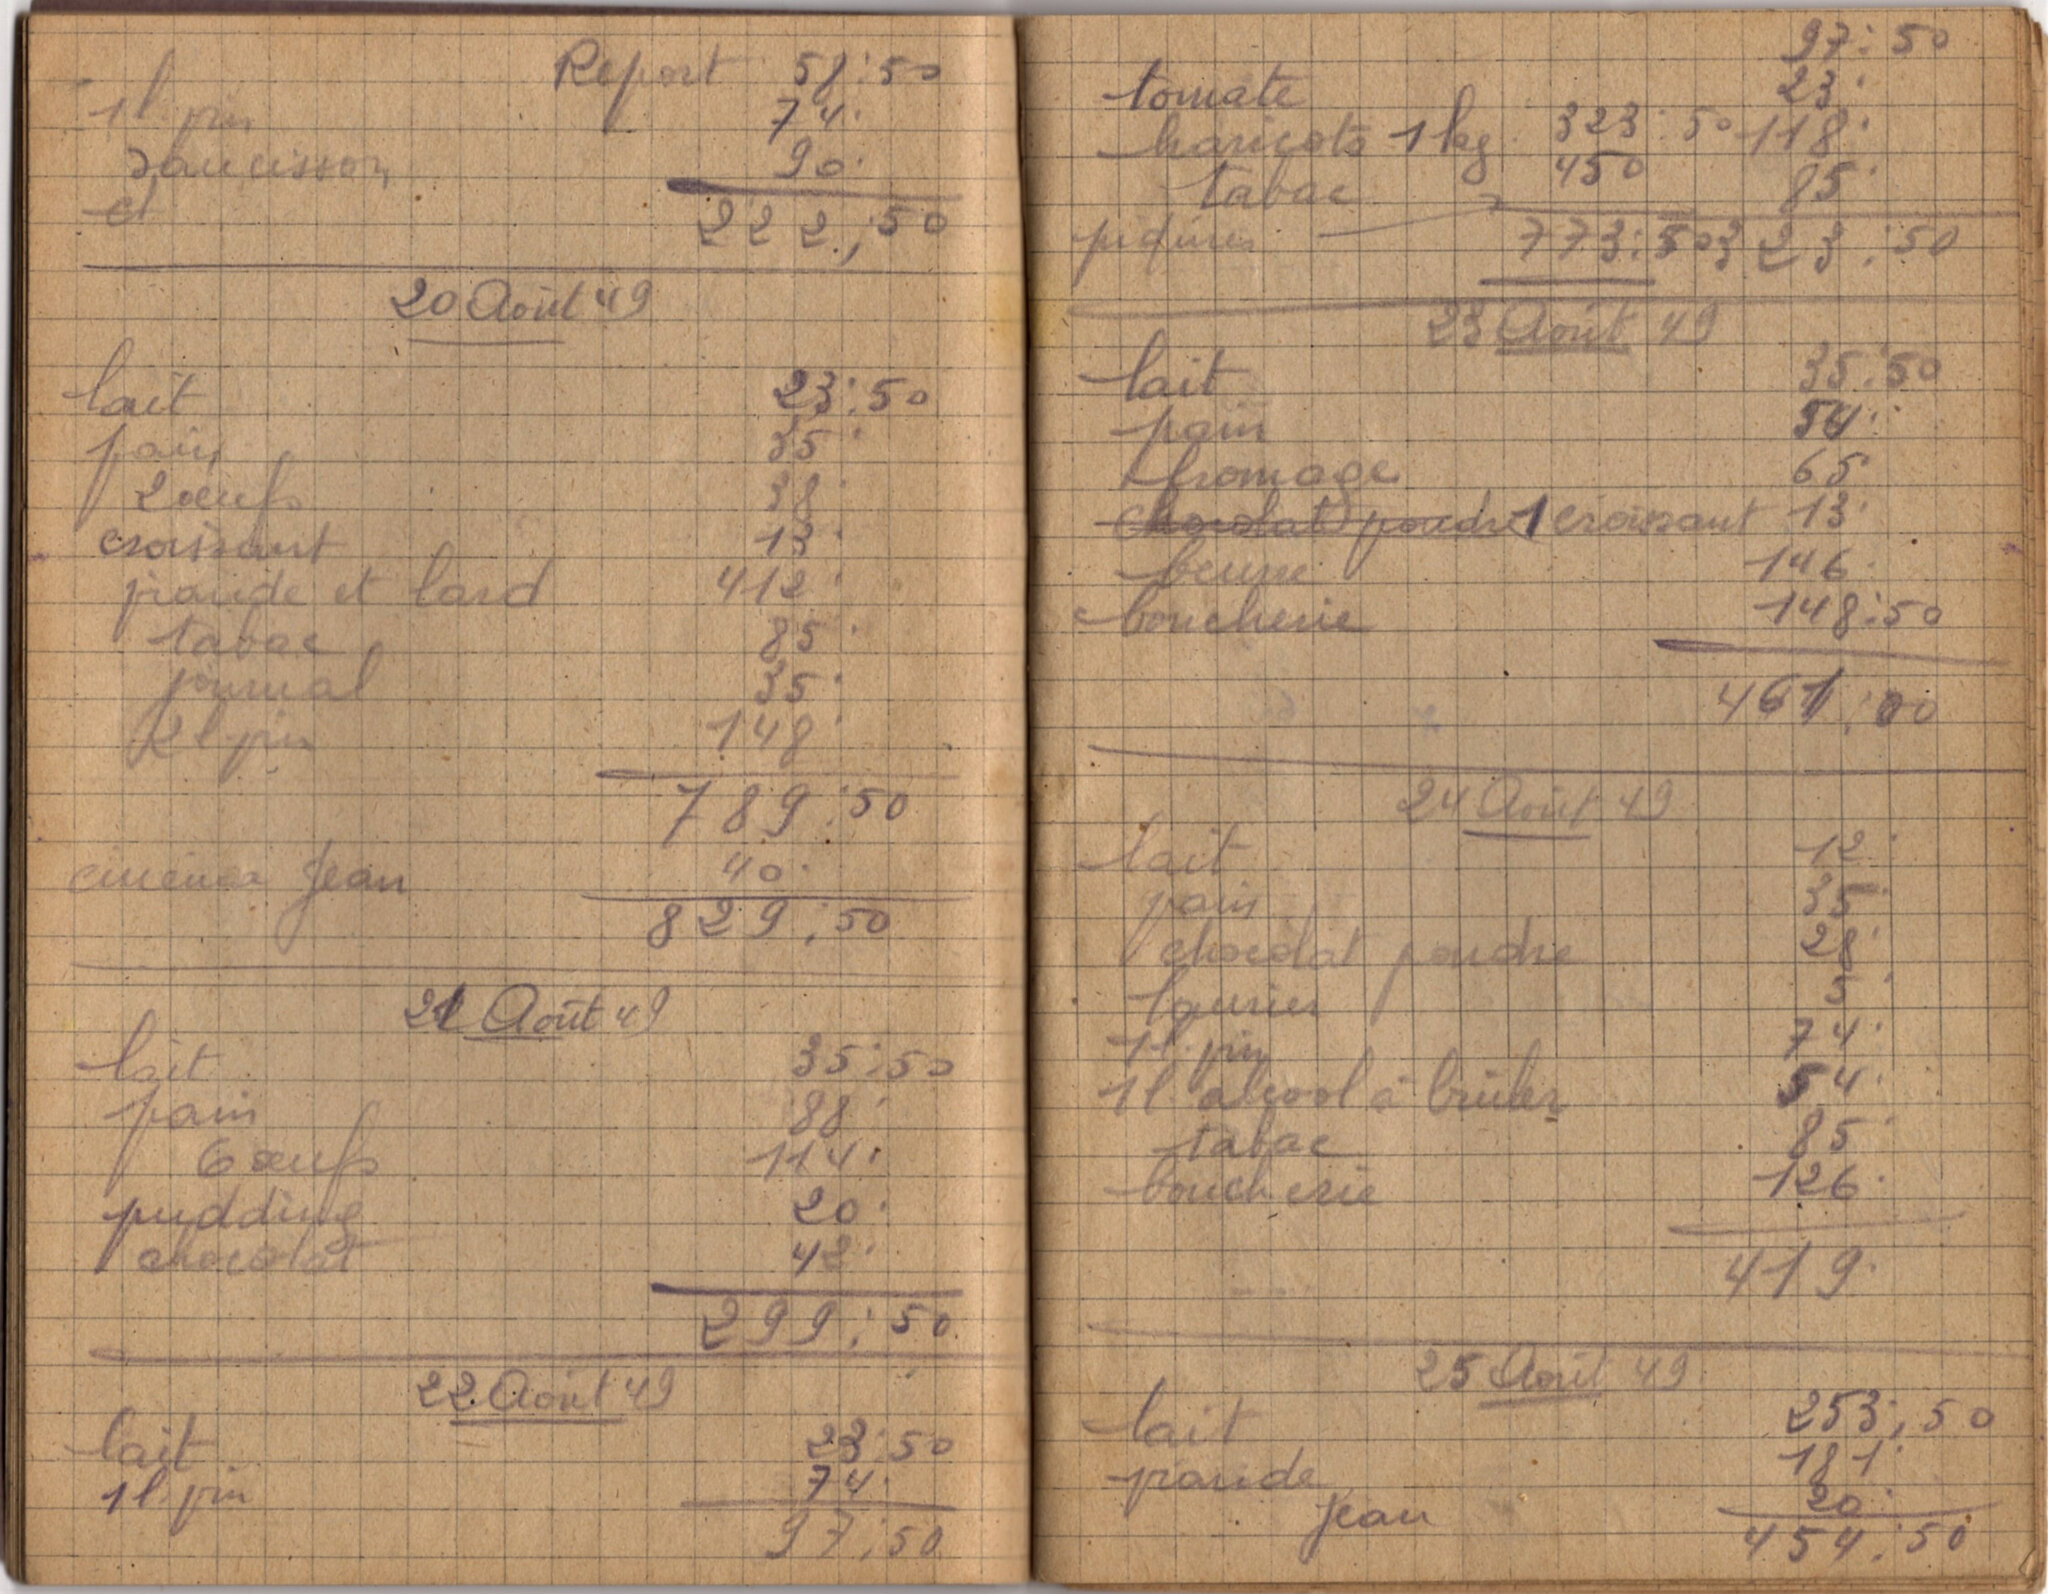 Report 58:50
1 l. vin 74:
saucisson 90:
et 222,50
20 Août 49
lait 23:50
pain 35:
2 œufs 38:
croissant 13:
viande et lard 412:
tabac 85:
journal 35:
2 l. vin 148:
789:50
cinéma Jean 40:
829:50
21 Août 49
lait 35:50
pain 88:
6 œufs 114:
pudding 20:
chocolat 42:
299:50
22 Août 49
lait 23:50
1 l. vin 74:
97:50
97:50
tomate 23:
haricots 1 kg 118:
tabac 85:
323:50
piqûres 323:50
450
773:50
23 Août 49
lait 35:50
pain 54:
fromage 65
chocolat poudre 1 croissant 13:
beurre 146:
boucherie 148:50
461:00
24 Août 49
lait 12:
pain 35:
chocolat poudre 28:
laurier 5:
1 l. vin 74:
1 l. alcool à brûler 54:
tabac 85:
boucherie 126:
419:
25 Août 49
lait 253:50
viande 181:
Jean 20:
454:50